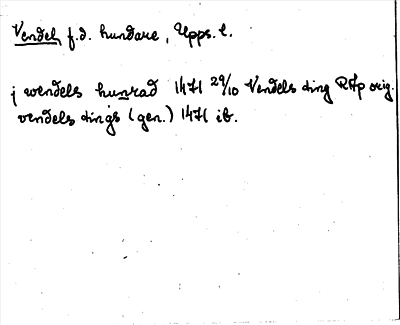 Vendel, f.d. hundare, Upps. l.
j wendels hunrad 1471 29/10 Vendels ting RAp orig.
vendels tings (gen.) 1471 ib.